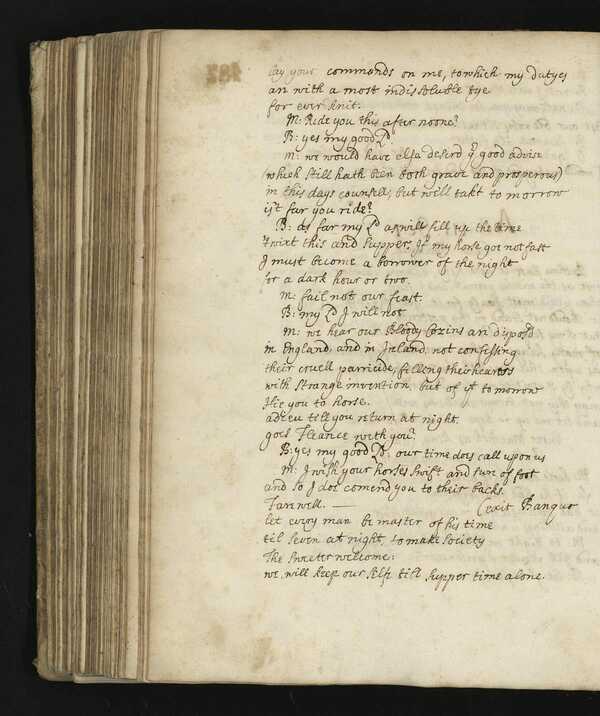 lay your commands on me, to which my dutyes
are with a most indissoluble tye
for ever knit.
M: Ride you this after noone?
B: yes my good Ld
M: we would have else desird yr good advise
(which still hath been both grave and prosperous)
in this days counsell, but we'll take to morrow
is't far you ride?
B: as far my Ld as will fill up the time
Twixt this and supper, If my horse goe not fast
I must become a borrower of the night
for a dark hour or two.
M: fail not our feast.
B: my Ld I will not
M: we hear our Bloody Cozins are disposd
in England, and in Ireland, not confessing
their cruell parricide, filling their hearers
with strange invention, but of yt to morrow
Hie you to horse.
adieu till you return at night.
goes Fleance with you?
B: yes my good Ld: our time does call upon us
M: I wish your horses swift and sure of foot
and so I doe comend you to their backs.
Farewell. — (exit Banquo
let every man be master of his time
til seven at night, to make society
The sweeter welcome:
we will keep our self till supper time alone.